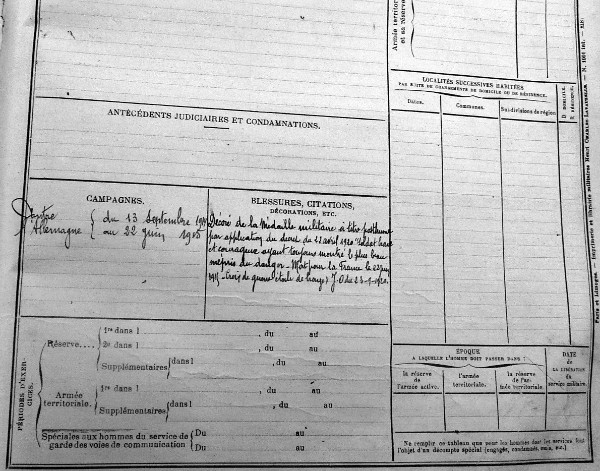 Armée territoriale et sa réserve
LOCALITÉS SUCCESSIVES HABITÉES
PAR SUITE DE CHANGEMENTS DE DOMICILE OU DE RÉSIDENCE.
Dates.
Communes.
Subdivisions de région
D DOMICILE.
R RÉSIDENCE.
ANTÉCÉDENTS JUDICIAIRES ET CONDAMNATIONS.
CAMPAGNES.
Contre Allemagne { du 13 Septembre
au 22 juin 1915
BLESSURES, CITATIONS,
DÉCORATIONS, ETC.
Décoré de la Médaille militaire à titre posthume
par application du décret du 12 avril 1920 "Soldat brave
et courageux ayant toujours montré le plus beau
mépris du danger - Mort pour la France le 22 juin
1915 - Croix de guerre étoile de bronze" J.O du 23-9-1920.
PÉRIODES D'EXERCICES.
Réserve....
1re dans l , du au
2e dans l , du au
Supplémentaires { dans l , du au
Armée territoriale.
1re dans l , du au
Supplémentaires { dans l , du au
Spéciales aux hommes du service de garde des voies de communication
Du au
Du au
ÉPOQUE
A LAQUELLE L'HOMME DOIT PASSER DANS :
la réserve de l'armée active.
l'armée territoriale.
la réserve de l'armée territoriale.
DATE
DE LA LIBÉRATION
du service militaire.
Ne remplir ce tableau que pour les hommes dont les services font
l'objet d'un décompte spécial (engagés, condamnés, omis, etc.)
Paris et Limoges. — Imprimerie et librairie militaires Henri CHARLES-LAVAUZELLE